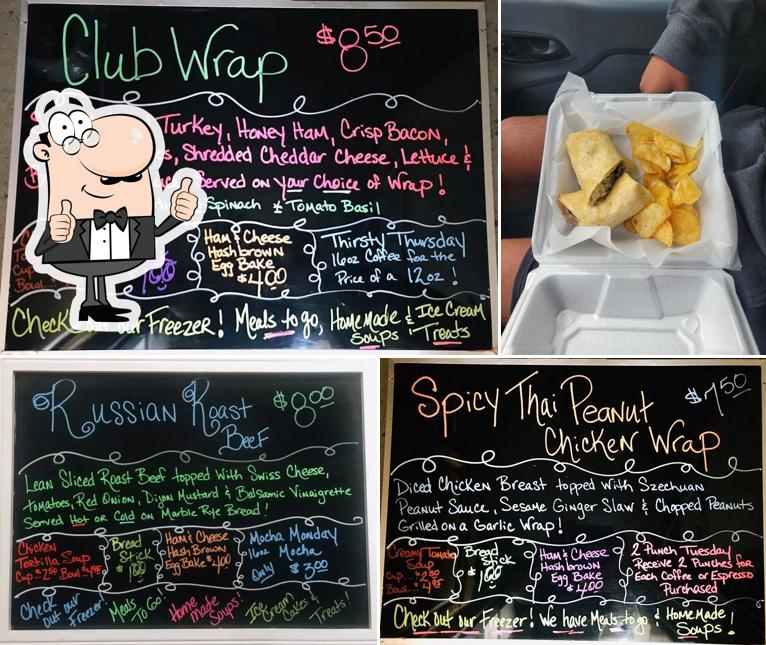 Club Wrap $8.50
Turkey, Honey Ham, Crisp Bacon,
Shredded Cheddar Cheese, Lettuce &
Served on your Choice of Wrap!
Spinach & Tomato Basil
Cup...
Bowl....
1.00
Ham & Cheese
Hashbrown
Egg Bake
$4.00
Thirsty Thursday
16oz Coffee for the
Price of a 12oz!
Check out our Freezer! Meals to go, Home Made Soups & Ice Cream Treats!
Russian Roast Beef $8.00
Lean Sliced Roast Beef topped with Swiss Cheese,
Tomatoes, Red Onion, Dijon Mustard & Balsamic Vinaigrette
Served Hot or Cold on Marble Rye Bread!
Chicken
Tortilla Soup
Cup...$2.50 Bowl...$4.95
Bread
Stick
$1.00
Ham & Cheese
Hash Brown
Egg Bake $4.00
Mocha Monday
16oz Mocha
Only $3.00
Check out our Freezer!
Meals To Go!
Home made Soups!
Ice Cream Cakes & Treats!
Spicy Thai Peanut $7.50
Chicken Wrap
Diced Chicken Breast topped with Szechuan
Peanut Sauce, Sesame Ginger Slaw & Chopped Peanuts
Grilled on a Garlic Wrap!
Creamy Tomato
Soup
Cup....$2.50
Bowl...$4.95
Bread
Stick
$1.00
Ham & Cheese
Hashbrown
Egg Bake
$4.00
2 Punch Tuesday
Receive 2 Punches for
Each Coffee or Espresso
Purchased
Check out our Freezer! We have Meals to go & Home Made
Soups!